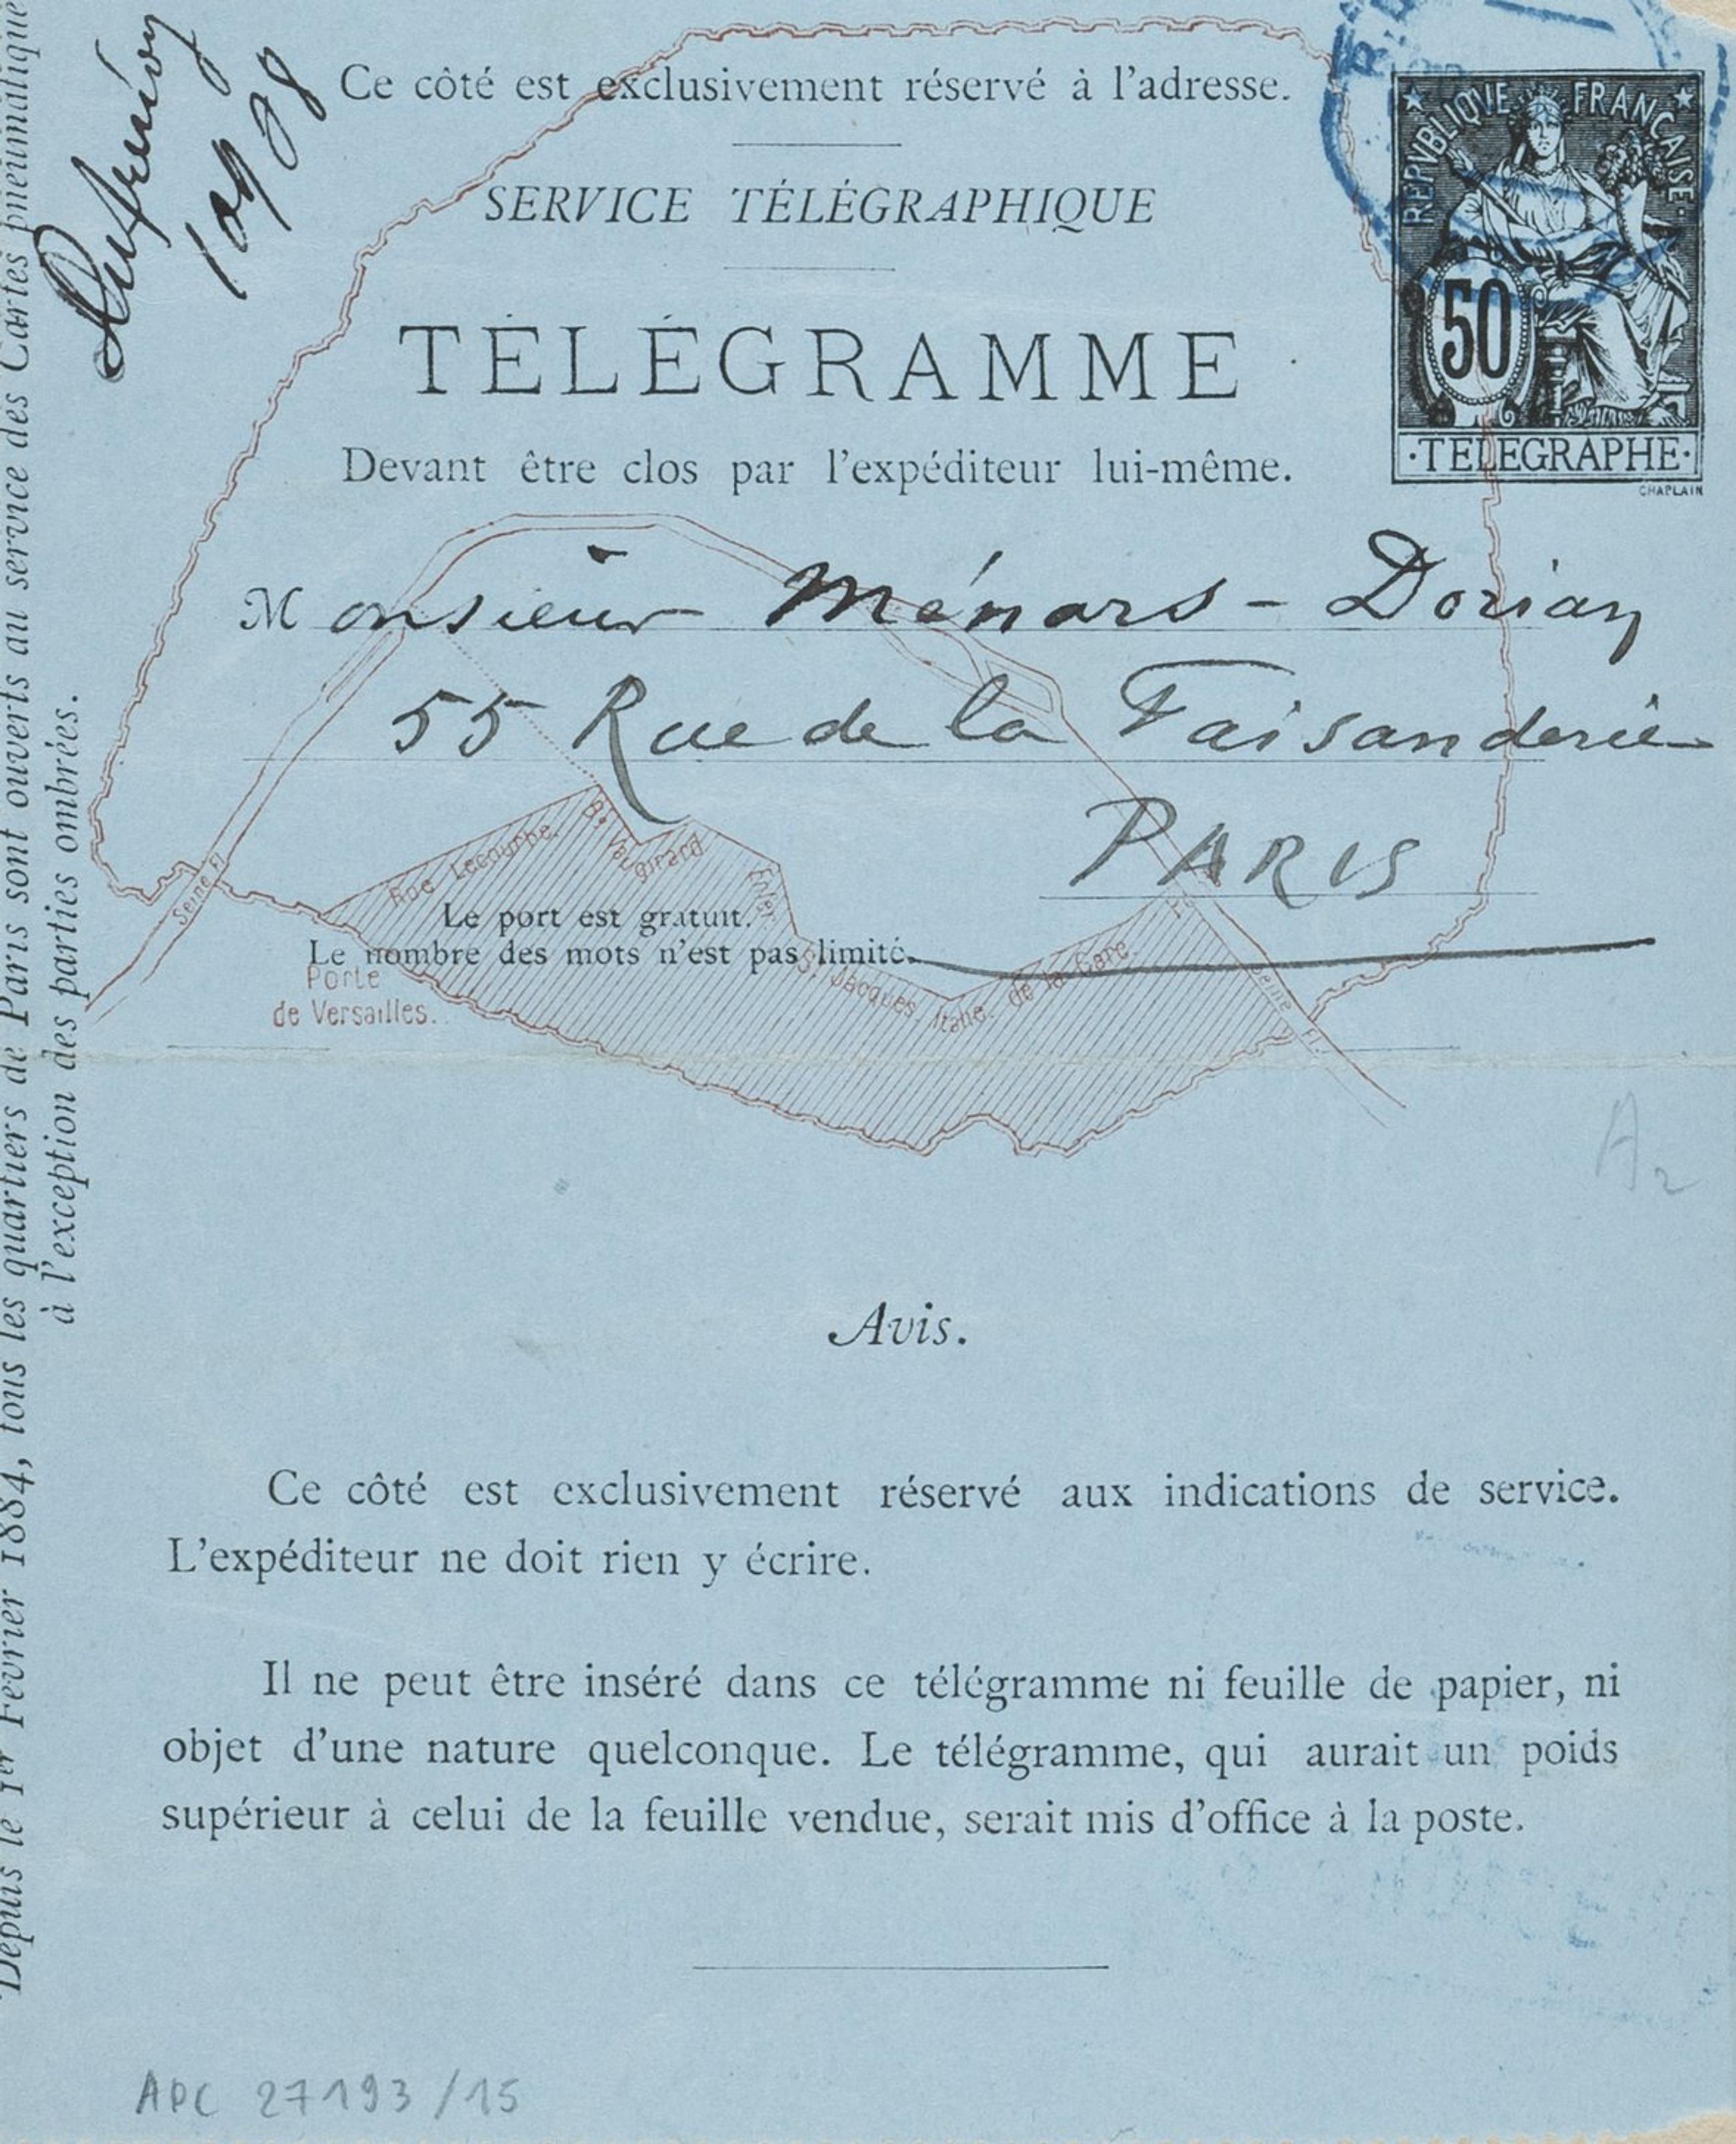 Ce côté est exclusivement réservé à l'adresse.
SERVICE TÉLÉGRAPHIQUE
TÉLÉGRAMME
Devant être clos par l'expéditeur lui-même.
REPVBLIQVE FRANÇAISE
50
·TELEGRAPHE·
CHAPLAIN
Monsieur Ménars - Dorian
55 Rue de la Faisanderie
PARIS
Rue Lecourbe.
Bd Vaugirard
Enfer
St Jacques. Italie. de la Gare.
Seine Fl.
Seine Fl.
Le port est gratuit.
Le nombre des mots n'est pas limité.
Porte
de Versailles.
Depuis le 1er Février 1884, tous les quartiers de Paris sont ouverts au service des Cartes pneumatique
à l'exception des parties ombrées.
A2
Avis.
Ce côté est exclusivement réservé aux indications de service.
L'expéditeur ne doit rien y écrire.
Il ne peut être inséré dans ce télégramme ni feuille de papier, ni
objet d'une nature quelconque. Le télégramme, qui aurait un poids
supérieur à celui de la feuille vendue, serait mis d'office à la poste.
APC 27193/15